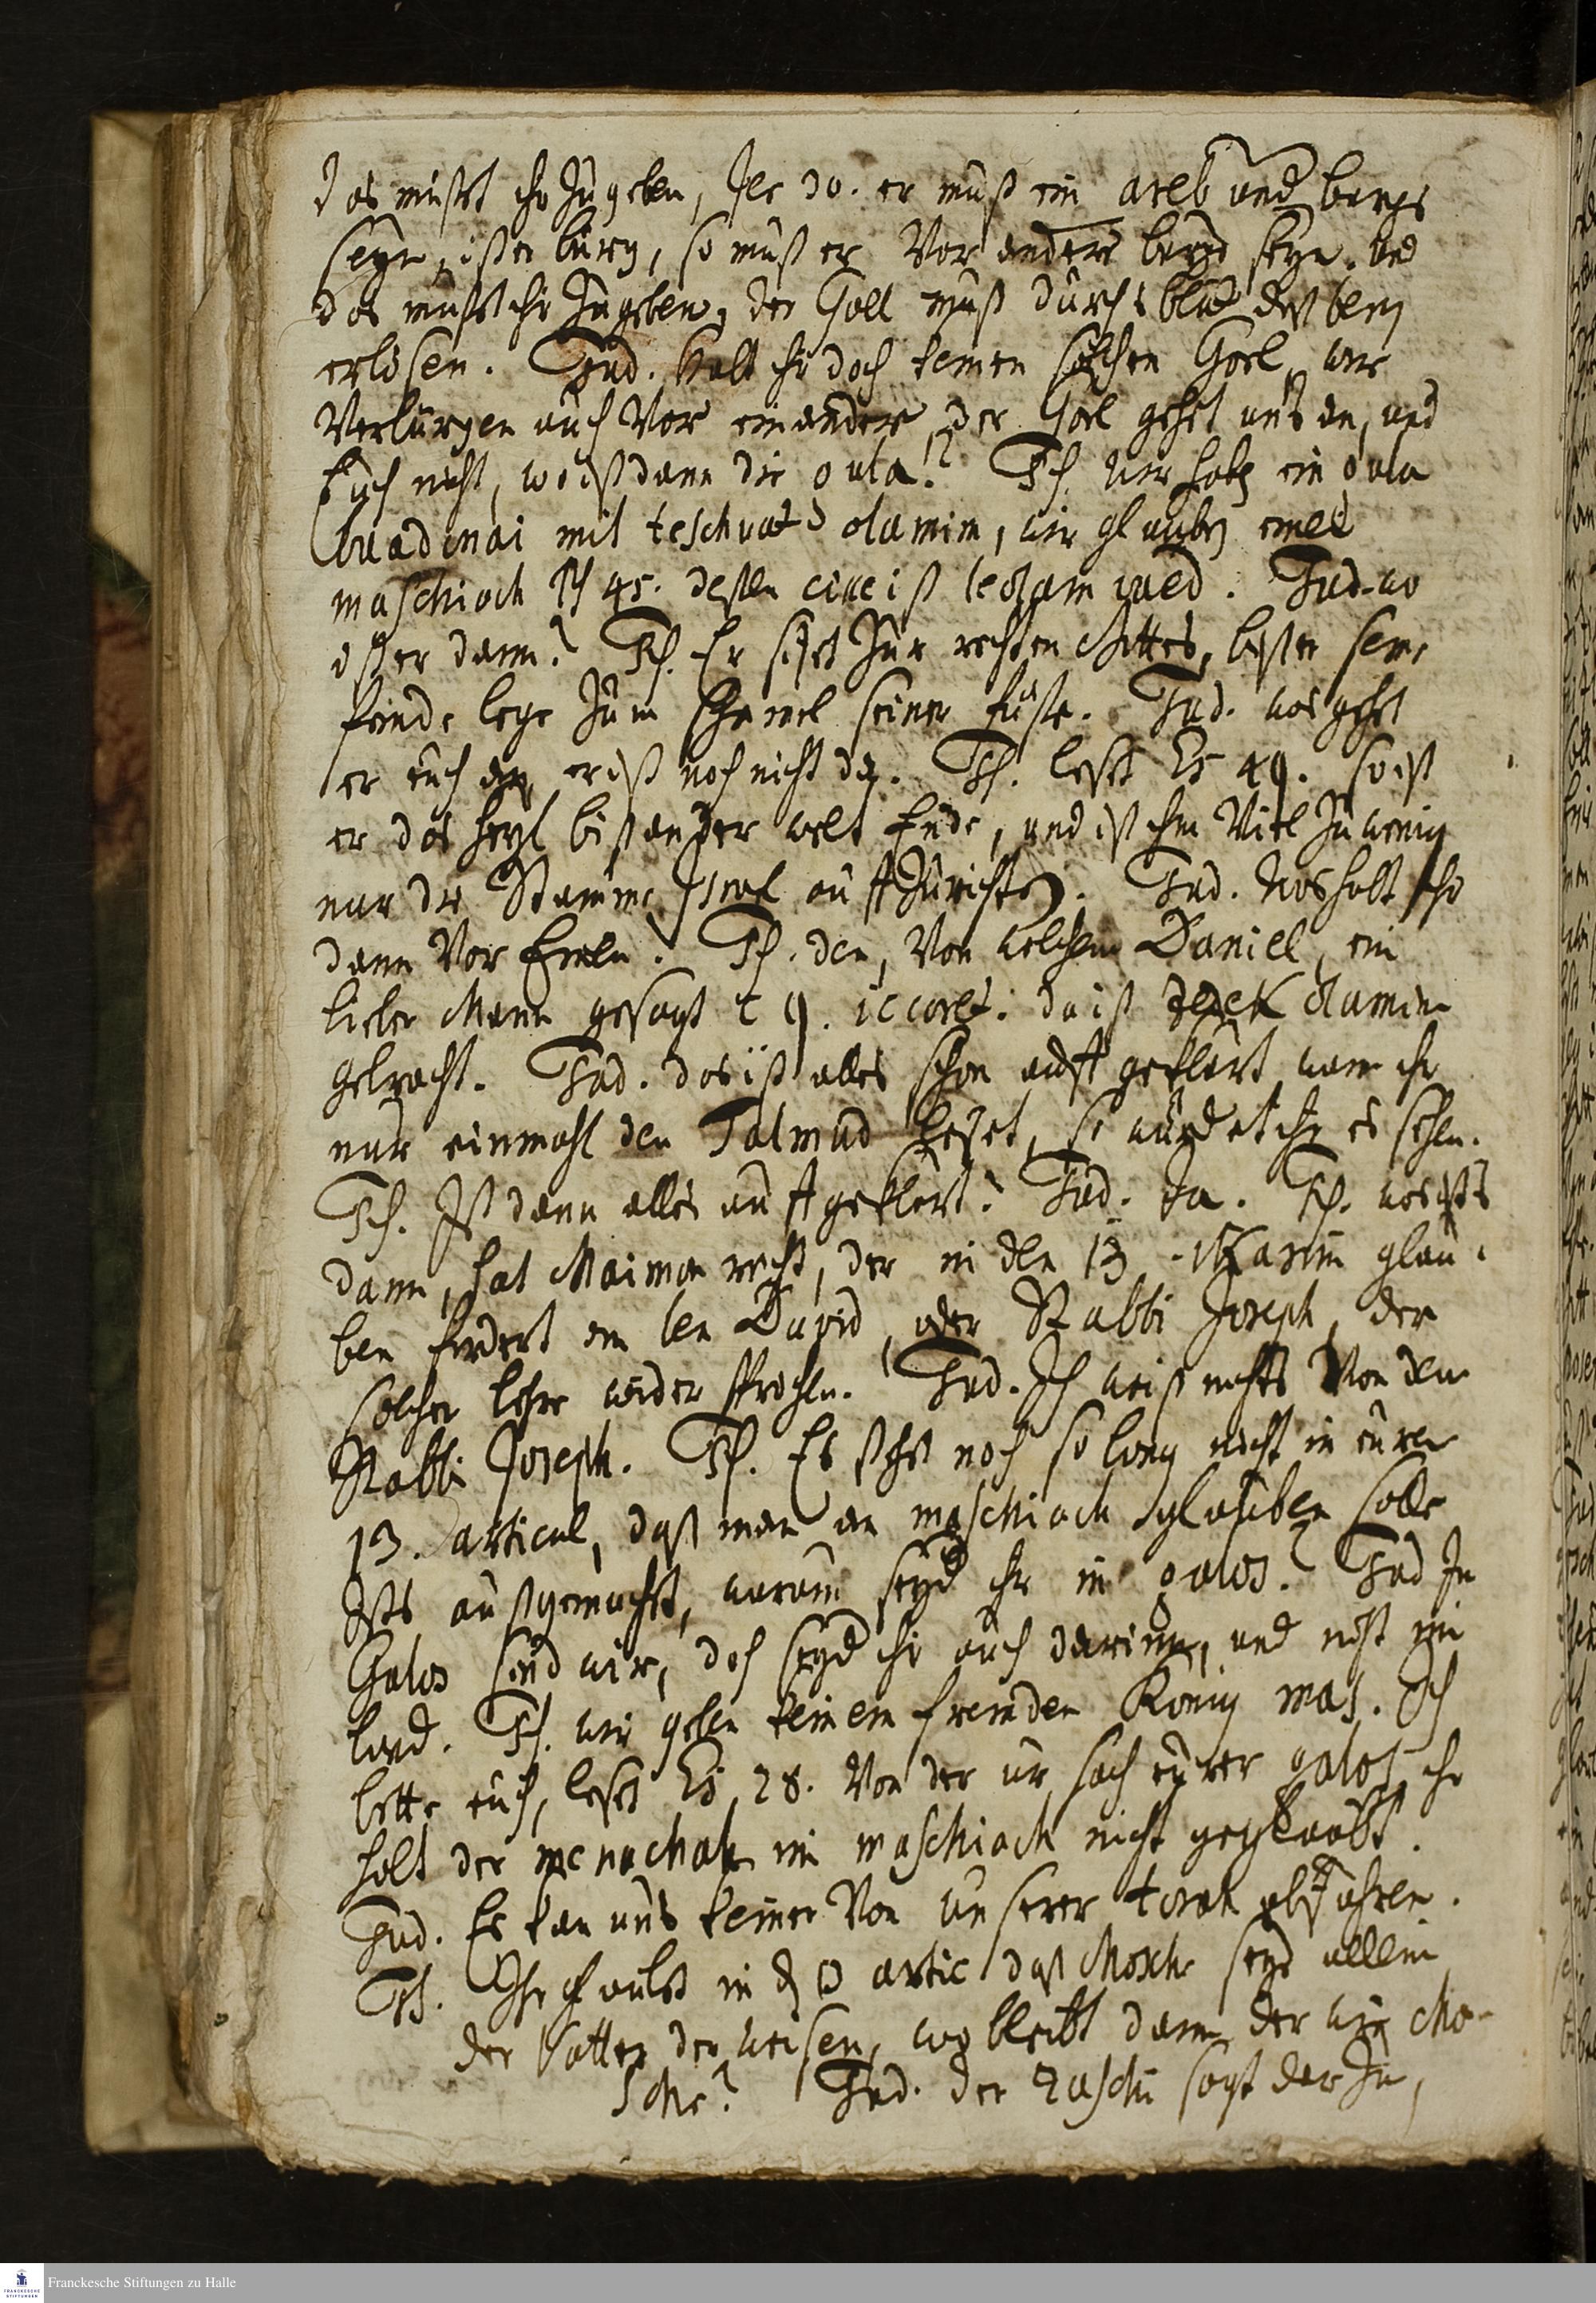 das müßet ihr zugeben, Jer 30. er muß ein areb und bürg
seyn, ist er bürg, so muß er Vor andere bürg seyn. und
das müßet ihr zugeben, der Goel muß durchs blut deß berg
erlösen. Jud. Habt ihr doch keinen solchen Goel, wir
Verbürgen auch Vor einander, der Goel gehet uns an, und
Euch nicht, wo ist dann die oula? Ich. wir habn ein oula
buadonai mit teschuat olamim, wir glauben einen
maschiach Ps 45. deßen ist leolam waed. Jud. wo
ist er dann? Ich. Er sizet zur rechten Gottes, biß er seine
feinde lege zum schemel seiner füße. Jud. was gehet
er euch an, er ist noch nicht da. Ich. leset Es 49. so ist
er das heyl biß an der welt Ende, und ist ihm Viel zu wenig
nur die Stämme Israel auffzurichten. Jud. was habt ihr
dann Vor Einen? Ich. den, Von welchem Daniel, ein
lieber Mann gesagt c 9. iccaret. da ist zedek olamim
gebracht. Jud. das ist alles schon auffgeklärt wann ihr
nur einmahl den Talmud leset, so würdet ihr es sehen.
Ich. Ist dann alles auffgeklärt? Jud. Ja. Ich. was ists
dann, hat Maimon recht, der in den 13 Ikkarim glau-
ben fordert an ben David, oder Rabbi Joseph, der
solcher lehre widersprochen. Jud. Ich weiß nichts Von dem
Rabbi Joseph. Ich. Es stehet noch so lang nicht in euren
13. articul, daß man an maschiach glauben solle
Ists außgemacht, warum seyd ihr in galos? Jud In
Galos sind wir, doch seyd ihr auch darinn, und nicht im
land. Ich. wir geben keinem fremden König mas. Ich
bitte euch, leset Es 28. Von der ursach eurer galos, ihr
habt der menuchah im maschiach nicht geglaubt.
Jud. Es kan uns keiner Von unserer torah abführen.
Ich. Ihr glaubt in den 13 artic daß Mosche seye allein
der Vatter der weisen, wo bleibt dann der wie Mo-
sche? Jud. der Raschi sagt der Ju,
Franckesche Stiftungen zu Halle